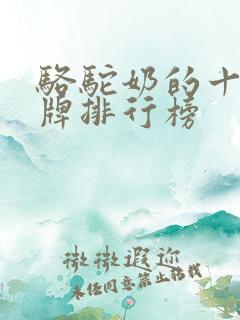 駱駝奶的十
牌排行榜
微微遐迩
未任同意禁止转载